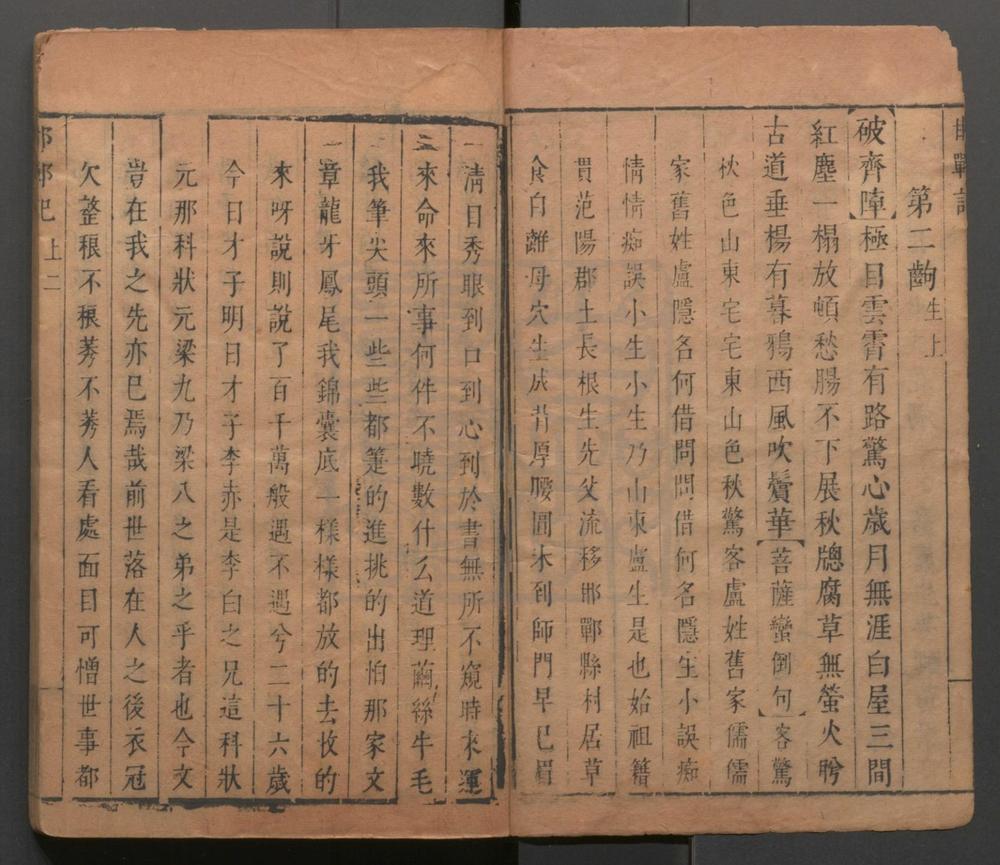 第二齣生上
【破齊陣】極目雲霄有路驚心歲月無涯白屋三間
紅塵一榻放頓愁腸不下展秋牕腐草無螢火盻
古道垂楊有暮鴉西風吹鬢華【菩薩蠻倒句】客驚
秋色山東宅宅東山色秋驚客盧姓舊家儒儒
家舊姓盧隱名何借問問借何名隱生小誤痴
情情痴誤小生小生乃山東盧生是也始祖籍
貫范陽郡土長根生先父流移邯鄲縣村居草
食自離母穴生成背厚腰圓未到師門早已眉
清目秀眼到口到心到於書無所不窺時來運
來命來所事何件不曉數什么道理繭絲牛毛
我筆尖頭一些些都筭的進挑的出怕那家文
章龍牙鳳尾我錦囊底一樣樣都放的去收的
來呀說則說了百千萬般遇不遇兮二十六歲
今日才子明日才子李赤是李白之兄這科狀
元那科狀元梁九乃梁八之弟之乎者也今文
豈在我之先亦已焉哉前世落在人之後衣冠
欠整稂不稂莠不莠人看處面目可憎世事都
邯鄲記 上二